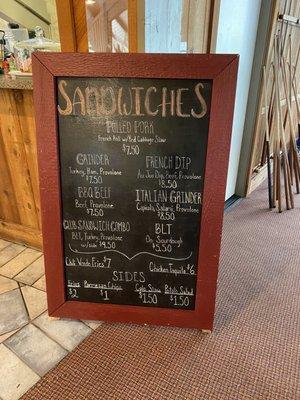 SANDWICHES
PULLED PORK
French Roll w/Red Cabbage Slaw
$7.50
GRINDER
Turkey, Ham, Provolone
$7.50
FRENCH DIP
Au Jus Dip, Beef, Provolone
$8.50
BBQ BEEF
Beef, Provolone
$7.50
ITALIAN GRINDER
Capicola, Salami, Provolone
$8.50
CLUB SANDWICH COMBO
BLT, Turkey, Provolone
w/side $9.50
BLT
On Sourdough
$5.50
Club Wrap Fries $7
Chicken Taquito $6
SIDES
Fries
$2
Parmesan Chips
$1
Cole Slaw
$1.50
Potato Salad
$1.50